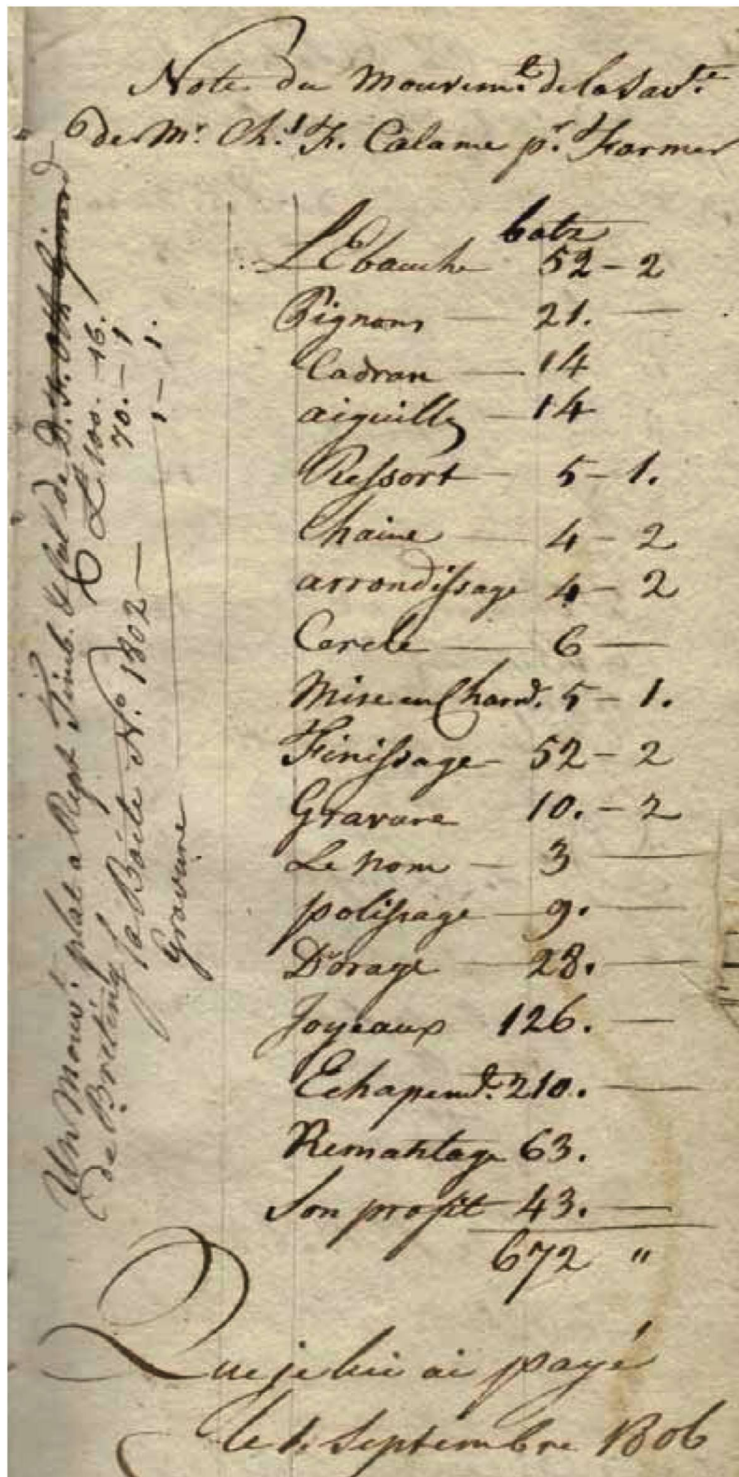 Note du Mouvemt. de la Savte.
de Mr. Chs. F. Calame pr. Farmer
batz
L'Ebauche 52 - 2
Pignons — 21. —
Cadran — 14
aiguilles — 14
Ressort — 5 - 1.
Chaine — 4 - 2
arrondissage 4 - 2
Cercle — 6 —
Mise en Charr. 5 - 1.
Finissage — 52 - 2
Gravure 10. - 2
Le Nom — 3 —
polissage — 9. —
Dorage — 28. —
Joyeaux 126. —
Echapemt. 210. —
Remontage 63.
Son profit 43. —
672 "
Que je lui ai payé
le 1. Septembre 1806
Un Mouvt. plat a Rept. Timb. & ful de D. F.
de Breting L 100. - 16.
la Boîte No. 1802 — 70. - 1
Gravure — 1 - 1.